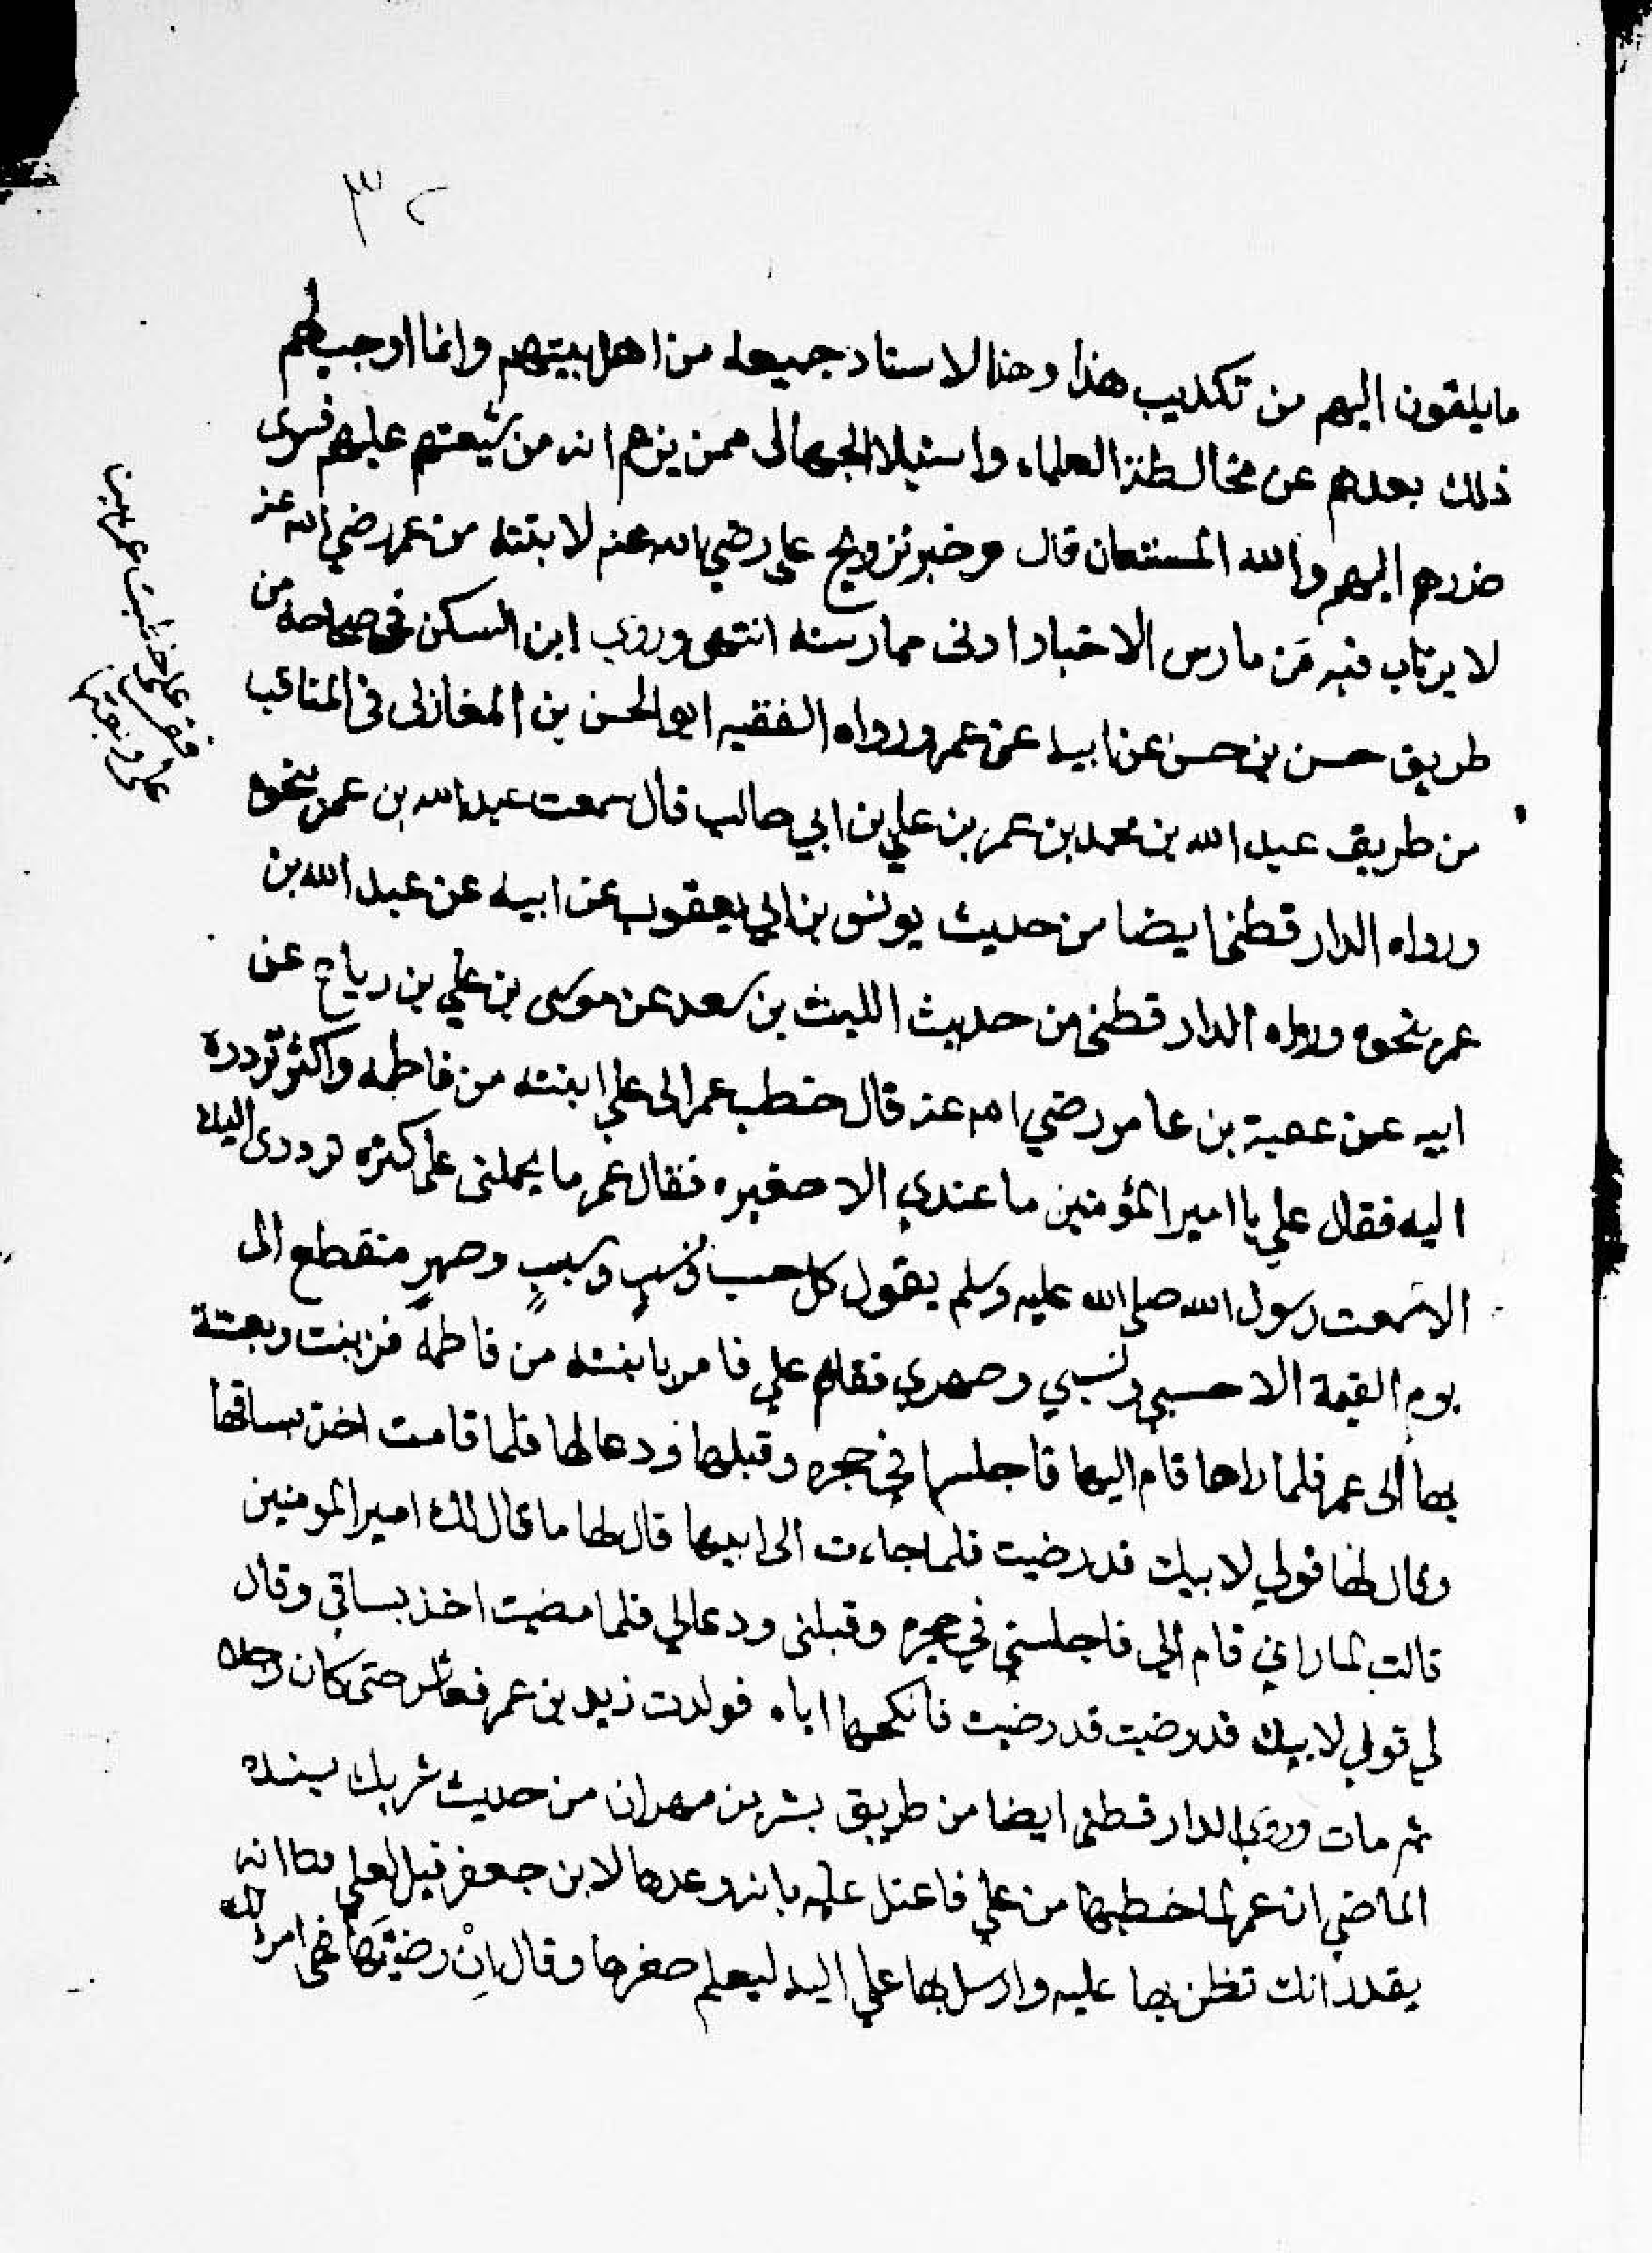 ٣٢
ما يلقون اليهم من تكذيب هذا وهذا الاسناد جميعه من اهل بيتهم وانما اوجب لهم
ذلك بعدهم عن مخالطة العلماء واستيلا الجهال ممن يزعم انه من شيعتهم عليهم فسرى
ضررهم اليهم والله المستعان قال وخبر تزويج علي رضي الله عنه لابنته من عمر رضي الله عنه
لا يرتاب فيه مَن مارس الاخبار ادنى ممارسته انتهى وروي ابن السكن في صحاحه من
طريق حسن بن حسن عن ابيه عن عمر ورواه الفقيه ابو الحسن بن المغازلي في المناقب
من طريق عبد الله بن محمد بن عمر بن علي بن ابي طالب قال سمعت عبد الله بن عمر بنحوه
ورواه الدارقطني ايضا من حديث يونس بن ابي يعقوب عن ابيه عن عبد الله بن
عمر بنحوه ورواه الدارقطني من حديث الليث بن سعد عن موسى بن علي بن رباح عن
ابيه عن عقبة بن عامر رضي الله عنه قال خطب عمر الى علي ابنته من فاطمه واكثر تردده
اليه فقال علي يا امير المؤمنين ما عندي الا صغيره فقال عمر ما يحملني على كثره ترددى اليك
الا سمعت رسول الله صلى الله عليه وسلم يقول كل حسب ونسبٍ وسببٍ وصهرٍ منقطع الى
يوم القيمة الا حسبي ونسبي وصهري فقام علي فامر بابنته من فاطمه فزينت وبعثة
بها الى عمر فلما راها قام اليها فاجلسها في حجره وقبلها ودعا لها فلما قامت اخذ بساقها
وقال لها قولي لابيك قد رضيت فلما جاءت الى ابيها قال لها ما قال لك امير المومنين
قالت لما راني قام الي فاجلسني في حجره وقبلني ودعا لي فلما مضيت اخذ بساقي وقال
لي قولي لابيك قد رضيت قد رضيت فانكحها اياه فولدت زيد بن عمر فعاش حتى كان رجلا
ثم مات وروي الدارقطني ايضا من طريق بشر بن مهران من حديث شريك بسنده
الماضي ان عمر لما خطبها من علي فاعتل عليه بانه وعدها لابن جعفر قيل لعلي انه
يقدر انك تظن بها عليه وارسل بها علي اليه ليعلم صغرها وقال اِنْ رضيتَها فهي امراة لك
فقر علي خطبت عمر بن